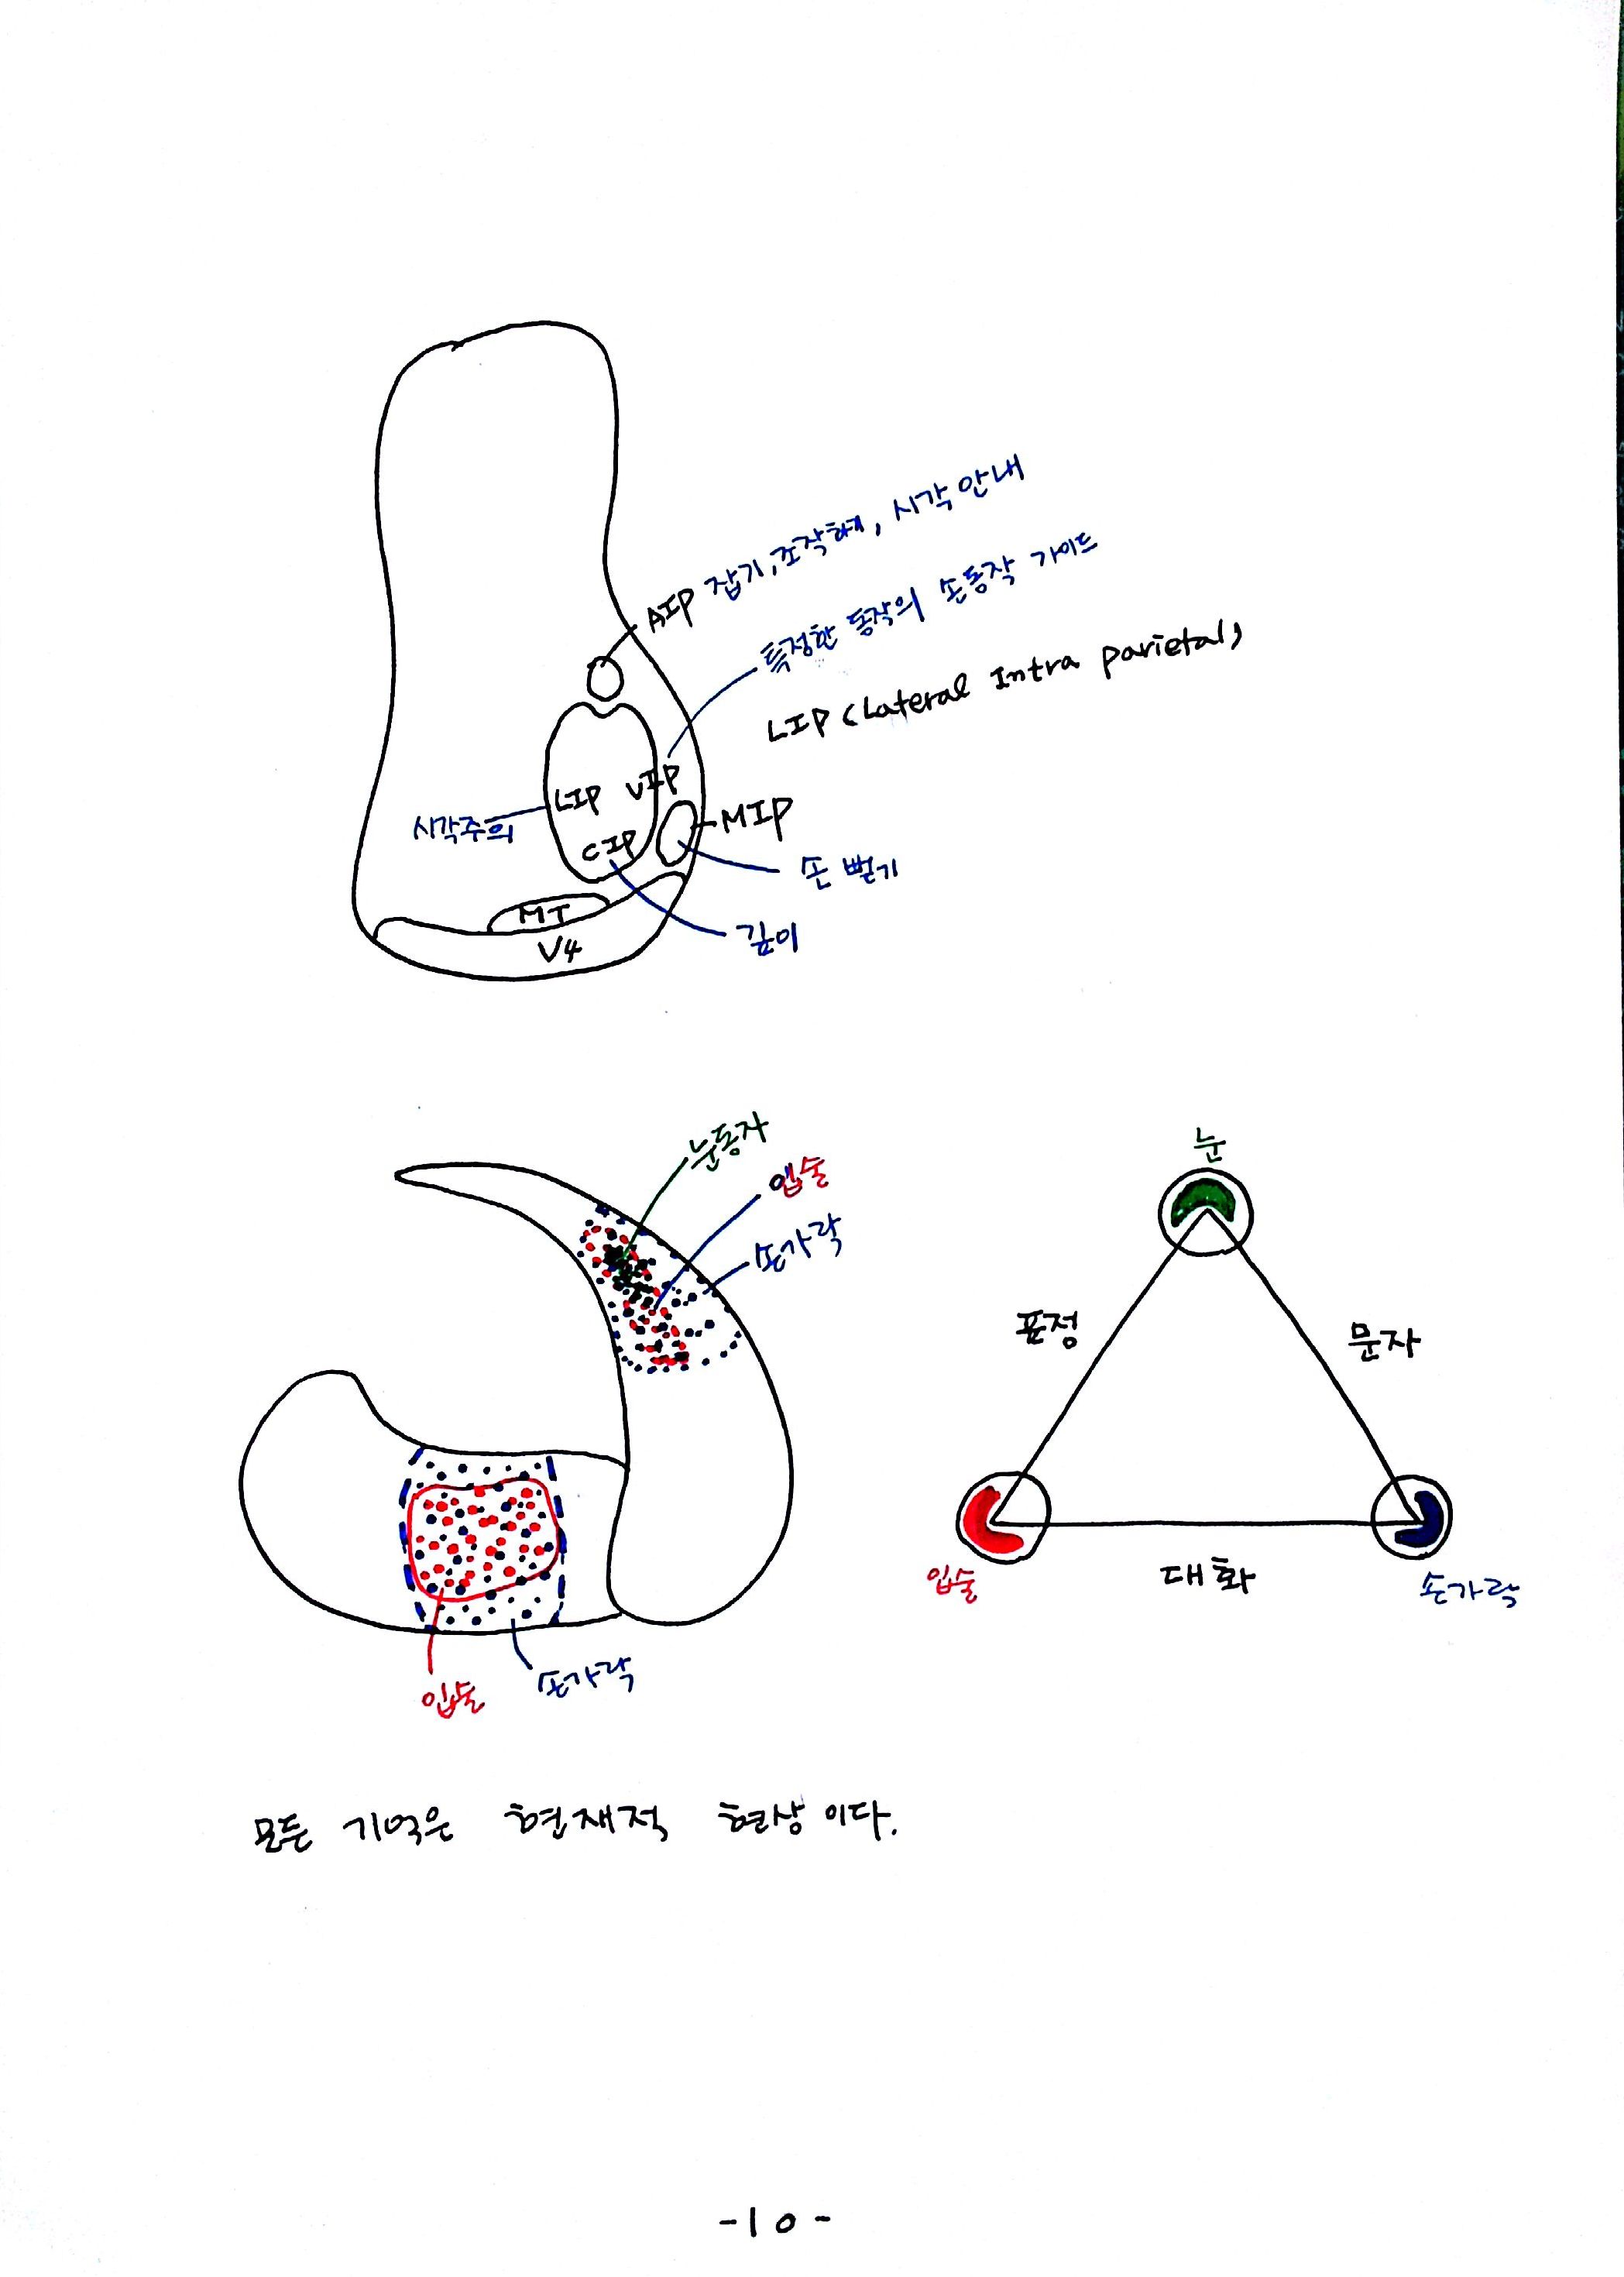 AIP 잡기, 조작하게, 시각 안내
특정한 동작의 손동작 가이드
LIP (Lateral Intra parietal)
LIP VIP
시각주의
MIP
CIP
손 뻗기
MT
깊이
V4
눈동자
입술
손가락
눈
표정
문자
입술
대화
손가락
입술
손가락
모든 기억은 현재적 현상이다.
-10-